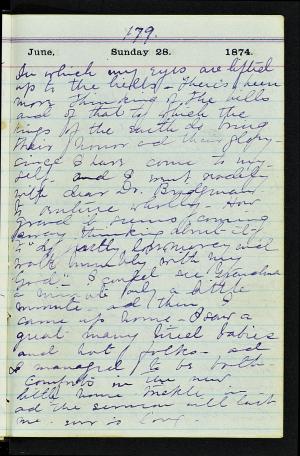 179.
June, Sunday 28. 1874.
In which my eyes are lifted
up to the hills - There's been
more thinking of the hills
and of that to which the
kings of the earth do bring
their honor and their glory
since I have come to my-
self. and I must
with dear Dr.
wholly. How
grand it seems coming
away thinking about it
"do justly, love mercy and
walk humbly with my
God" - I
a minute only a little
minute. and then I
came up home - I saw a
great many tired babies
and hot folks - and
I managed to be both
in the new
little home
and the sermon will last
me